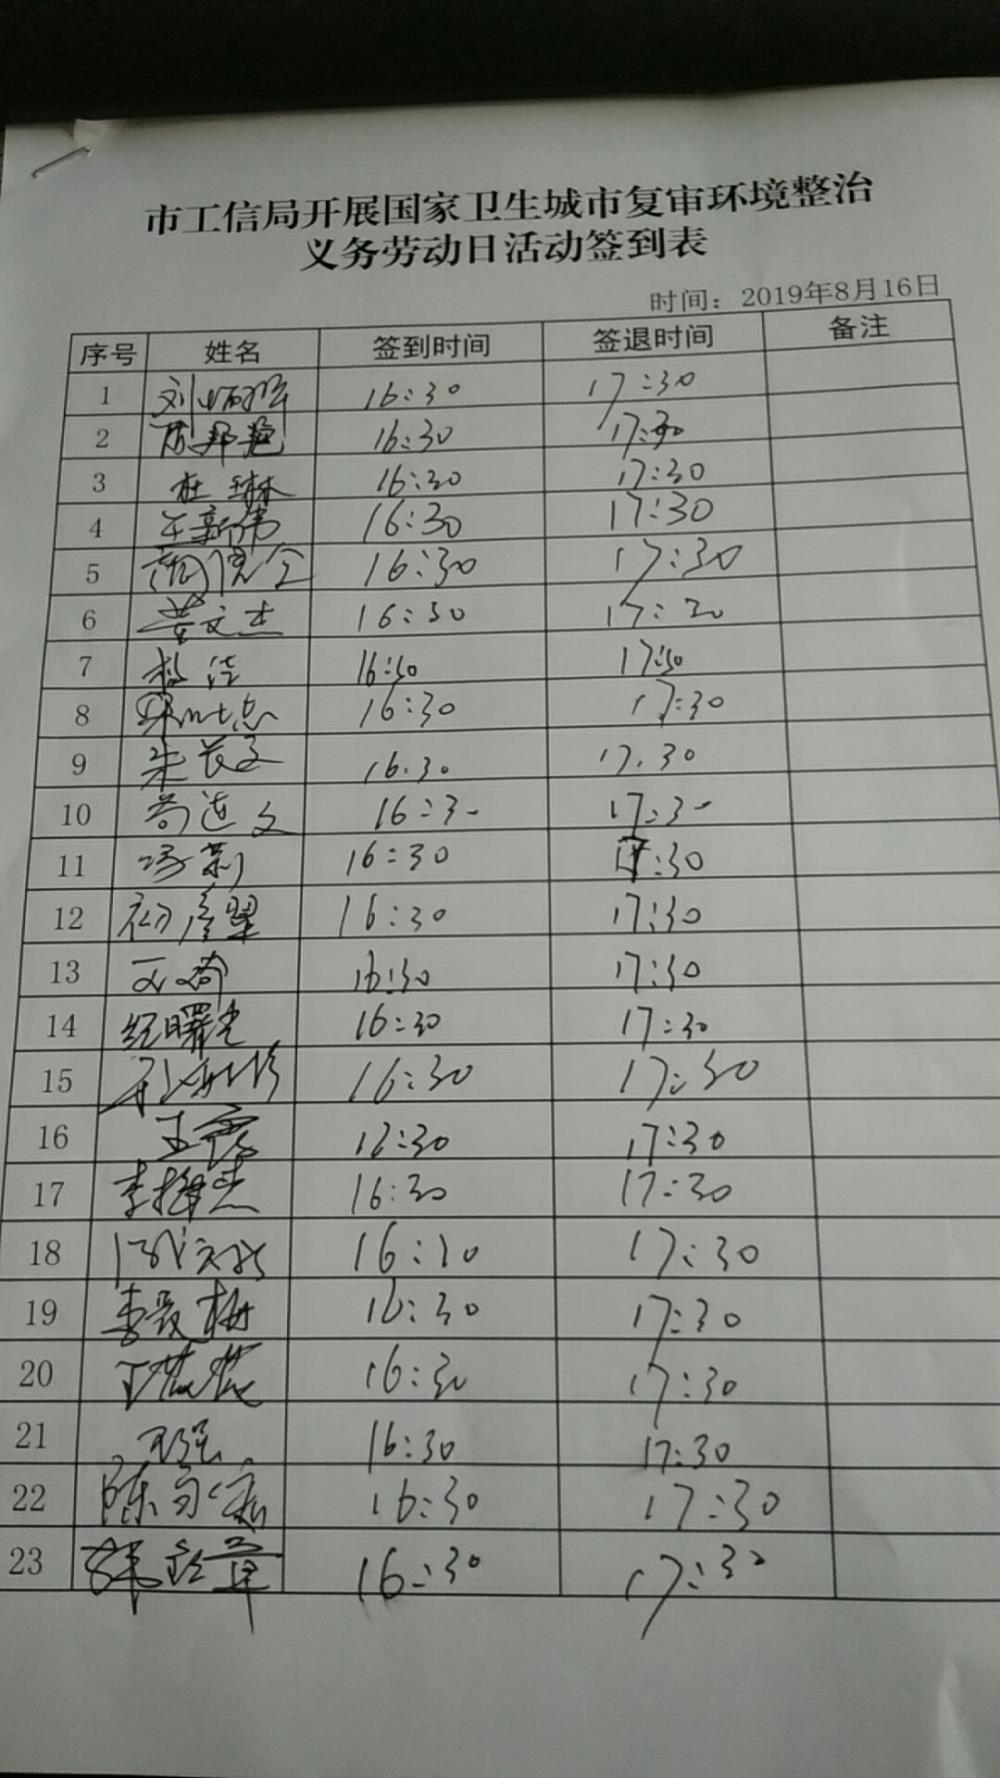 市工信局开展国家卫生城市复审环境整治
义务劳动日活动签到表
时间：2019年8月16日
序号 姓名 签到时间 签退时间 备注
1 16:30 17:30
2 陈邦艳 16:30 17:30
3 杜琳 16:30 17:30
4 王新伟 16:30 17:30
5 16:30 17:30
6 黄文杰 16:30 17:30
7 16:30 17:30
8 16:30 17:30
9 朱长文 16.30 17.30
10 尚连文 16:30 17:30
11 冯莉 16:30 17:30
12 初彦翠 16:30 17:30
13 16:30 17:30
14 纪曙光 16:30 17:30
15 16:30 17:30
16 王霞 16:30 17:30
17 李梅 16:30 17:30
18 16:30 17:30
19 李爱梅 16:30 17:30
20 16:30 17:30
21 王强 16:30 17:30
22 陈 16:30 17:30
23 16:30 17:30